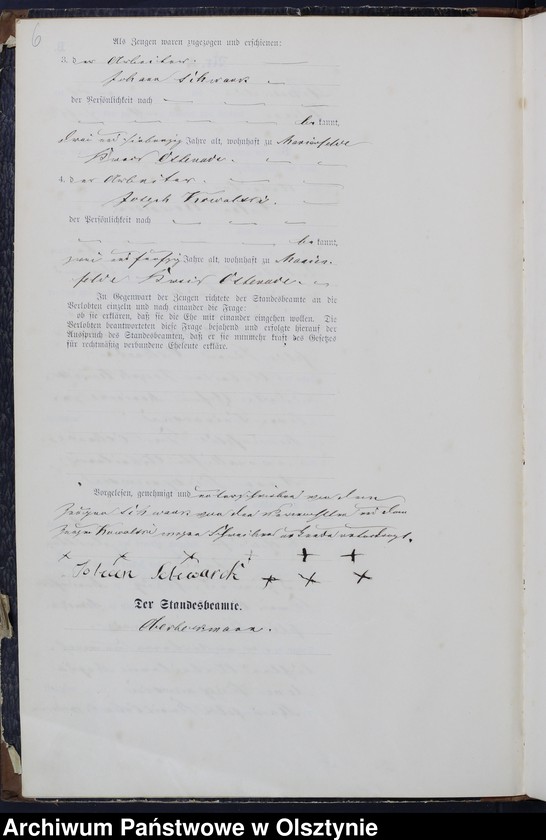 6
Als Zeugen waren zugezogen und erschienen:
3. der Arbeiter
Johann Schwark
der Persönlichkeit nach
bekannt,
drei und siebenzig Jahre alt, wohnhaft zu Marienfelde
Kreis Osterode.
4. der Arbeiter
Joseph Kowalski.
der Persönlichkeit nach
bekannt,
zwei und fünfzig Jahre alt, wohnhaft zu Marien-
felde Kreis Osterode.
In Gegenwart der Zeugen richtete der Standesbeamte an die
Verlobten einzeln und nach einander die Frage:
ob sie erklären, daß sie die Ehe mit einander eingehen wollen. Die
Verlobten beantworteten diese Frage bejahend und erfolgte hierauf der
Ausspruch des Standesbeamten, daß er sie nunmehr kraft des Gesetzes
für rechtmäßig verbundene Eheleute erkläre.
Vorgelesen, genehmigt und unterschrieben von dem
Zeugen Schwark von den Vermählten und dem
Zeugen Kowalski wegen Schreibensunkunde unterkreuzt.
+ + + + + +
Schwark + + +
Der Standesbeamte.
Archiwum Państwowe w Olsztynie